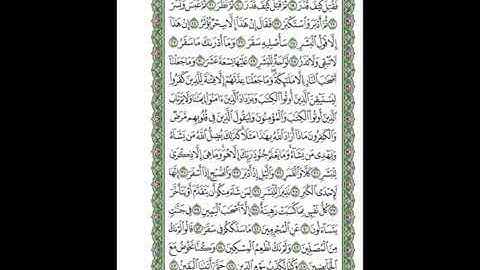 فَقُتِلَ كَيْفَ قَدَّرَ ١٩ ثُمَّ قُتِلَ كَيْفَ قَدَّرَ ٢٠ ثُمَّ نَظَرَ ٢١ ثُمَّ عَبَسَ وَبَسَرَ
٢٢ ثُمَّ أَدْبَرَ وَٱسْتَكْبَرَ ٢٣ فَقَالَ إِنْ هَٰذَآ إِلَّا سِحْرٌ يُؤْثَرُ ٢٤ إِنْ هَٰذَآ
إِلَّا قَوْلُ ٱلْبَشَرِ ٢٥ سَأُصْلِيهِ سَقَرَ ٢٦ وَمَآ أَدْرَىٰكَ مَا سَقَرُ
٢٧ لَا تُبْقِى وَلَا تَذَرُ ٢٨ لَوَّاحَةٌ لِّلْبَشَرِ ٢٩ عَلَيْهَا تِسْعَةَ عَشَرَ ٣٠ وَمَا جَعَلْنَآ
أَصْحَٰبَ ٱلنَّارِ إِلَّا مَلَٰٓئِكَةً وَمَا جَعَلْنَا عِدَّتَهُمْ إِلَّا فِتْنَةً لِّلَّذِينَ كَفَرُوا۟
لِيَسْتَيْقِنَ ٱلَّذِينَ أُوتُوا۟ ٱلْكِتَٰبَ وَيَزْدَادَ ٱلَّذِينَ ءَامَنُوٓا۟ إِيمَٰنًا وَلَا يَرْتَابَ
ٱلَّذِينَ أُوتُوا۟ ٱلْكِتَٰبَ وَٱلْمُؤْمِنُونَ وَلِيَقُولَ ٱلَّذِينَ فِى قُلُوبِهِم مَّرَضٌ
وَٱلْكَٰفِرُونَ مَاذَآ أَرَادَ ٱللَّهُ بِهَٰذَا مَثَلًا كَذَٰلِكَ يُضِلُّ ٱللَّهُ مَن يَشَآءُ
وَيَهْدِى مَن يَشَآءُ وَمَا يَعْلَمُ جُنُودَ رَبِّكَ إِلَّا هُوَ وَمَا هِىَ إِلَّا ذِكْرَىٰ
لِلْبَشَرِ ٣١ كَلَّا وَٱلْقَمَرِ ٣٢ وَٱلَّيْلِ إِذْ أَدْبَرَ ٣٣ وَٱلصُّبْحِ إِذَآ أَسْفَرَ ٣٤ إِنَّهَا
لَإِحْدَى ٱلْكُبَرِ ٣٥ نَذِيرًا لِّلْبَشَرِ ٣٦ لِمَن شَآءَ مِنكُمْ أَن يَتَقَدَّمَ أَوْ يَتَأَخَّرَ
٣٧ كُلُّ نَفْسٍۭ بِمَا كَسَبَتْ رَهِينَةٌ ٣٨ إِلَّآ أَصْحَٰبَ ٱلْيَمِينِ ٣٩ فِى جَنَّٰتٍ
يَتَسَآءَلُونَ ٤٠ عَنِ ٱلْمُجْرِمِينَ ٤١ مَا سَلَكَكُمْ فِى سَقَرَ ٤٢ قَالُوا۟ لَمْ نَكُ
مِنَ ٱلْمُصَلِّينَ ٤٣ وَلَمْ نَكُ نُطْعِمُ ٱلْمِسْكِينَ ٤٤ وَكُنَّا نَخُوضُ مَعَ
ٱلْخَآئِضِينَ ٤٥ وَكُنَّا نُكَذِّبُ بِيَوْمِ ٱلدِّينِ ٤٦ حَتَّىٰٓ أَتَىٰنَا ٱلْيَقِينُ ٤٧